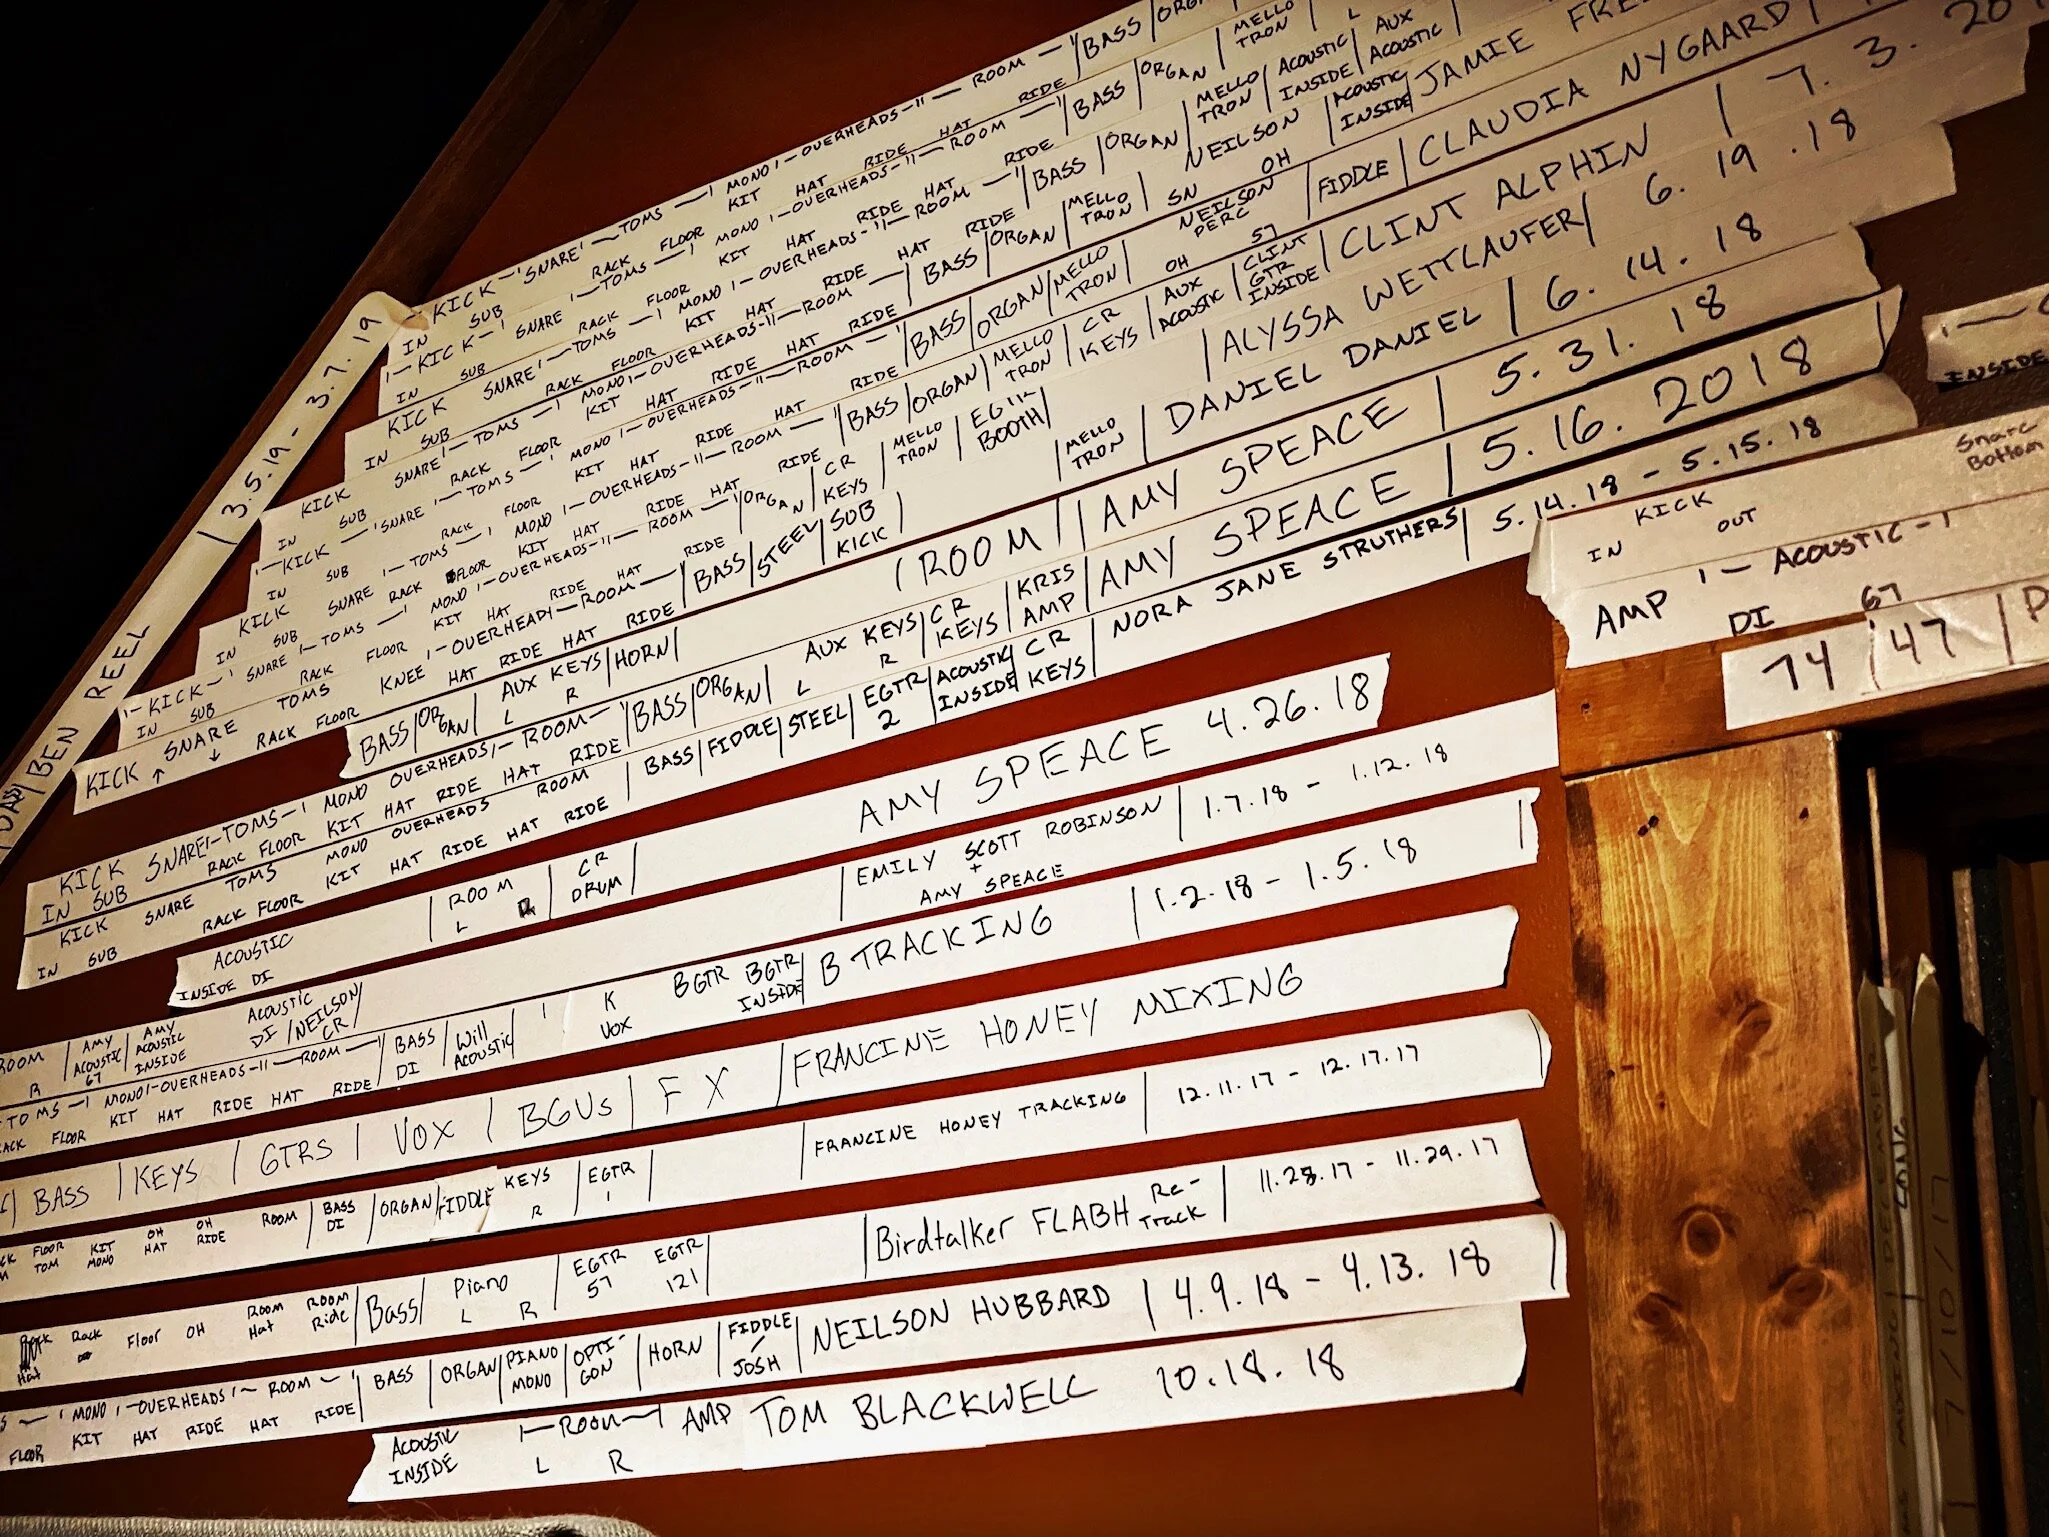 BEN REEL | 3.5.19 - 3.7.19
- KICK - ' SNARE ' - TOMS - ' MONO ' - OVERHEADS - '' - ROOM - ' | BASS
IN SUB RACK FLOOR KIT HAT RIDE HAT RIDE
MELLO TRON
' - KICK - ' SNARE ' - TOMS - ' MONO ' - OVERHEADS - '' - ROOM - ' | BASS | ORGAN | MELLO TRON | ACOUSTIC INSIDE | AUX ACOUSTIC
IN SUB RACK FLOOR KIT HAT RIDE HAT RIDE
KICK SNARE ' - TOMS - ' MONO ' - OVERHEADS - '' - ROOM - ' | BASS | ORGAN | MELLO TRON | NEILSON | ACOUSTIC INSIDE | JAMIE
IN SUB RACK FLOOR KIT HAT RIDE HAT RIDE
KICK SNARE ' - TOMS - ' MONO ' - OVERHEADS - '' - ROOM - | BASS | ORGAN | MELLO TRON | SN OH NEILSON PERC | FIDDLE | CLAUDIA NYGAARD
IN SUB RACK FLOOR KIT HAT RIDE HAT RIDE
' - KICK - ' SNARE ' - TOMS - ' MONO ' - OVERHEADS - '' - ROOM - ' | BASS | ORGAN | MELLO TRON | CR KEYS | OH AUX ACOUSTIC | 57 CLINT GTR INSIDE | CLINT ALPHIN | 7. 3.
IN SUB RACK FLOOR KIT HAT RIDE HAT RIDE
KICK SNARE ' - TOMS - ' MONO ' - OVERHEADS - '' - ROOM - ' | BASS | ORGAN | MELLO TRON | ALYSSA WETTLAUFER | 6. 19 .18
IN SUB RACK FLOOR KIT HAT RIDE HAT RIDE
' - KICK - ' SNARE ' - TOMS - ' MONO ' - OVERHEADS - '' - ROOM - ' | ORGAN | CR KEYS | MELLO TRON | EGTR BOOTH | MELLO TRON | DANIEL DANIEL | 6. 14. 18
IN SUB RACK FLOOR KIT HAT RIDE HAT RIDE
KICK SNARE TOMS KNEE - OVERHEAD - ROOM - ' | BASS | STEEL | SUB KICK | ROOM | AMY SPEACE | 5. 31. 18
RACK FLOOR HAT RIDE HAT RIDE
BASS | ORGAN | AUX KEYS L R | HORN | AUX KEYS L R | CR KEYS | KRIS AMP | AMY SPEACE | 5. 16. 2018
KICK SNARE ' - TOMS - ' MONO OVERHEADS ' - ROOM - ' | BASS | ORGAN |
IN SUB RACK FLOOR KIT HAT RIDE HAT RIDE
KICK SNARE TOMS MONO OVERHEADS ROOM | BASS | FIDDLE | STEEL | EGTR 2 | ACOUSTIC INSIDE | CR KEYS | NORA JANE STRUTHERS | 5.14.18 - 5.15.18
IN SUB RACK FLOOR KIT HAT RIDE HAT RIDE
ACOUSTIC INSIDE DI | ROOM L R | CR DRUM | AMY SPEACE 4.26.18
ROOM R | AMY ACOUSTIC 67 | AMY ACOUSTIC INSIDE | ACOUSTIC DI | NEILSON CR | EMILY SCOTT ROBINSON + AMY SPEACE | 1.7.18 - 1.12.18
- TOMS - ' MONO ' - OVERHEADS - '' - ROOM - ' | BASS DI | Will ACOUSTIC | K VOX BGTR BGTR INSIDE | B TRACKING | 1.2.18 - 1.5.18
FLOOR KIT HAT RIDE HAT RIDE
| BASS | KEYS | GTRS | VOX | BGVs | FX | FRANCINE HONEY MIXING
FLOOR TOM KIT MONO OH HAT OH RIDE ROOM | BASS DI | ORGAN | FIDDLE KEYS R | EGTR 1 | FRANCINE HONEY TRACKING | 12.11.17 - 12.17.17
Hat Rack Floor OH ROOM Hat ROOM Ride | Bass | Piano L R | EGTR 57 EGTR 121 | Birdtalker FLABH Re-Track | 11.28.17 - 11.29.17
' MONO ' - OVERHEADS ' - ROOM - ' | BASS | ORGAN | PIANO MONO | OPTI-GON | HORN | FIDDLE / JOSH | NEILSON HUBBARD | 4.9.18 - 4.13.18
FLOOR KIT HAT RIDE HAT RIDE
ACOUSTIC INSIDE - ROOM - L R AMP TOM BLACKWELL 10.18.18
INSIDE
KICK Snare Bottom
IN OUT
AMP ' - ACOUSTIC - '
DI 67
74 | 47 |
7/10/17